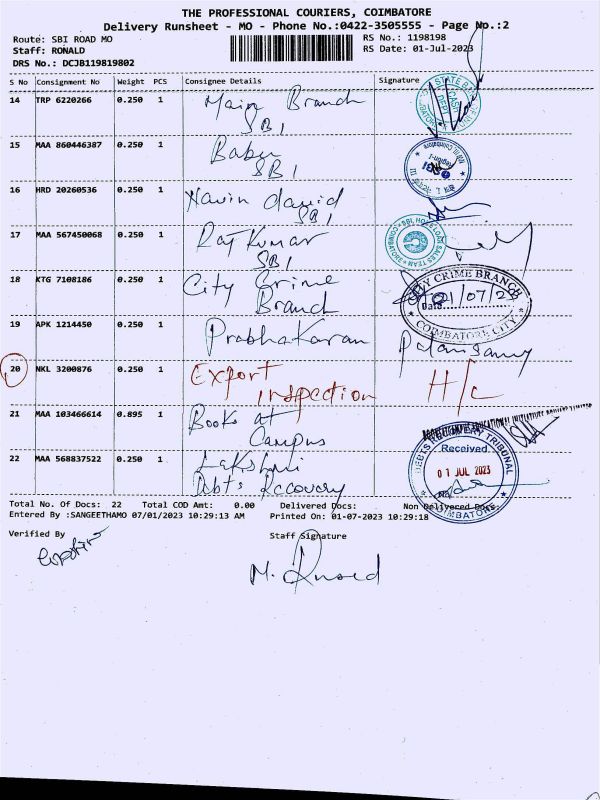 THE PROFESSIONAL COURIERS, COIMBATORE
Delivery Runsheet - MO - Phone No.:0422-3505555 - Page No.:2
Route: SBI ROAD MO RS No.: 1198198
Staff: RONALD RS Date: 01-Jul-2023
DRS No.: DCJB119819802
S No Consignment No Weight PCS Consignee Details Signature
14 TRP 6220266 0.250 1 Main Branch
SBI
15 MAA 860446387 0.250 1 Babu
SBI
16 HRD 20260536 0.250 1 Navin david
SBI
17 MAA 567450068 0.250 1 Raj Kumar
SBI
18 KTG 7108186 0.250 1 City Crime
Branch
CITY CRIME BRANCH
Date 01/07/23
COIMBATORE CITY
19 APK 1214450 0.250 1 Prabhakaran Palanisamy
20 NKL 3200876 0.250 1 Export
Inspection H/C
21 MAA 103466614 0.895 1 Books at
Campus
22 MAA 568837522 0.250 1 Lakshmi
Debts Recovery
DEBTS RECOVERY TRIBUNAL
Received
01 JUL 2023
COIMBATORE
Total No. Of Docs: 22 Total COD Amt: 0.00 Delivered Docs: Non Delivered Docs:
Entered By :SANGEETHAMO 07/01/2023 10:29:13 AM Printed On: 01-07-2023 10:29:18
Verified By Staff Signature